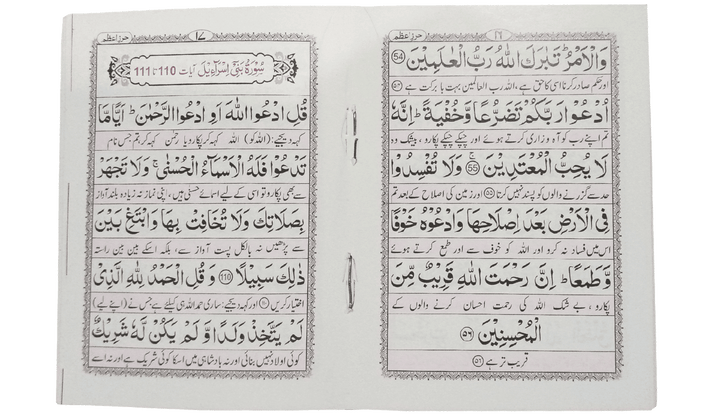 حرز اعظم
١٦
وَالْاَمْرُ ؕ تَبٰرَكَ اللّٰهُ رَبُّ الْعٰلَمِیْنَ 54
اور حکم صادر کرنا اسی کا حق ہے، اللہ رب العالمین بہت با برکت ہے ٥٤
اُدْعُوْا رَبَّكُمْ تَضَرُّعًا وَّخُفْیَةً ؕ اِنَّهٗ
تم اپنے رب کو آہ و زاری کرتے ہوئے اور چپکے چپکے پکارو، بیشک وہ
لَا یُحِبُّ الْمُعْتَدِیْنَ 55 وَلَا تُفْسِدُوْا
حد سے گزرنے والوں کو پسند نہیں کرتا 55 اور زمین کی اصلاح کے بعد تم
فِی الْاَرْضِ بَعْدَ اِصْلَاحِهَا وَادْعُوْهُ خَوْفًا
اس میں فساد نہ کرو اور اللہ کو خوف سے اور طمع کرتے ہوئے
وَّطَمَعًا ؕ اِنَّ رَحْمَتَ اللّٰهِ قَرِیْبٌ مِّنَ
پکارو، بے شک اللہ کی رحمت احسان کرنے والوں کے
الْمُحْسِنِیْنَ ٥٦
قریب تر ہے ٥٦
حرز اعظم
١٧
سُوْرَةُ بَنِیْۤ اِسْرَآءِیْل آیات 110 تا 111
قُلِ ادْعُوا اللّٰهَ اَوِ ادْعُوا الرَّحْمٰنَ ؕ اَیًّامَّا
کہہ دیجیے: (اللہ کو) اللہ کہہ کر پکارو یا رحمٰن کہہ کر تم جس نام
تَدْعُوْا فَلَهُ الْاَسْمَآءُ الْحُسْنٰی ۚ وَلَا تَجْهَرْ
سے بھی پکارو تو اسی کے لیے اسمائے حسنیٰ ہیں، اپنی نماز نہ زیادہ بلند آواز
بِصَلَاتِكَ وَلَا تُخَافِتْ بِهَا وَابْتَغِ بَیْنَ
سے پڑھیں نہ بالکل پست آواز سے، بلکہ اسکے بین بین راستہ
ذٰلِكَ سَبِیْلًا 110 وَقُلِ الْحَمْدُ لِلّٰهِ الَّذِیْ
اختیار کریں اور کہہ دیجیے: ساری حمد اللہ ہی کیلئے ہے جس نے (اپنے لیے)
لَمْ یَتَّخِذْ وَلَدًا وَّلَمْ یَكُنْ لَّهٗ شَرِیْكٌ
کوئی اولاد نہیں بنائی اور نہ بادشاہی میں اسکا کوئی شریک ہے اور نہ اسے